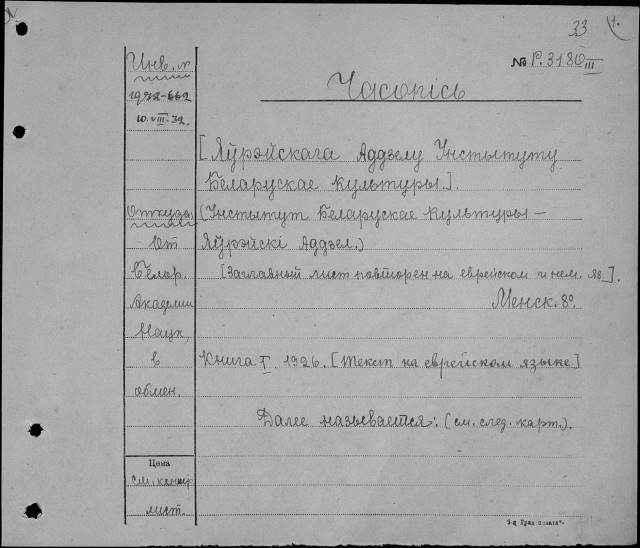 33 1.
№ Р.3180 III
Часопісь
[Яўрэйскага Аддзелу Інстытуту
Беларускае Культуры.].
(Інстытут Беларускае Культуры –
Яўрэйскі Аддзел.)
[Заглавный лист повторен на еврейском и нем. яз.].
Менск. 8°.
Книга I. 1926. [Текст на еврейском языке.]
Далее называется: (см. след. карт.).
Инв. №
10.VIII.32
Откуда:
От
Белор.
Академии
Наук,
в
обмен.
Цена
см.
лист.